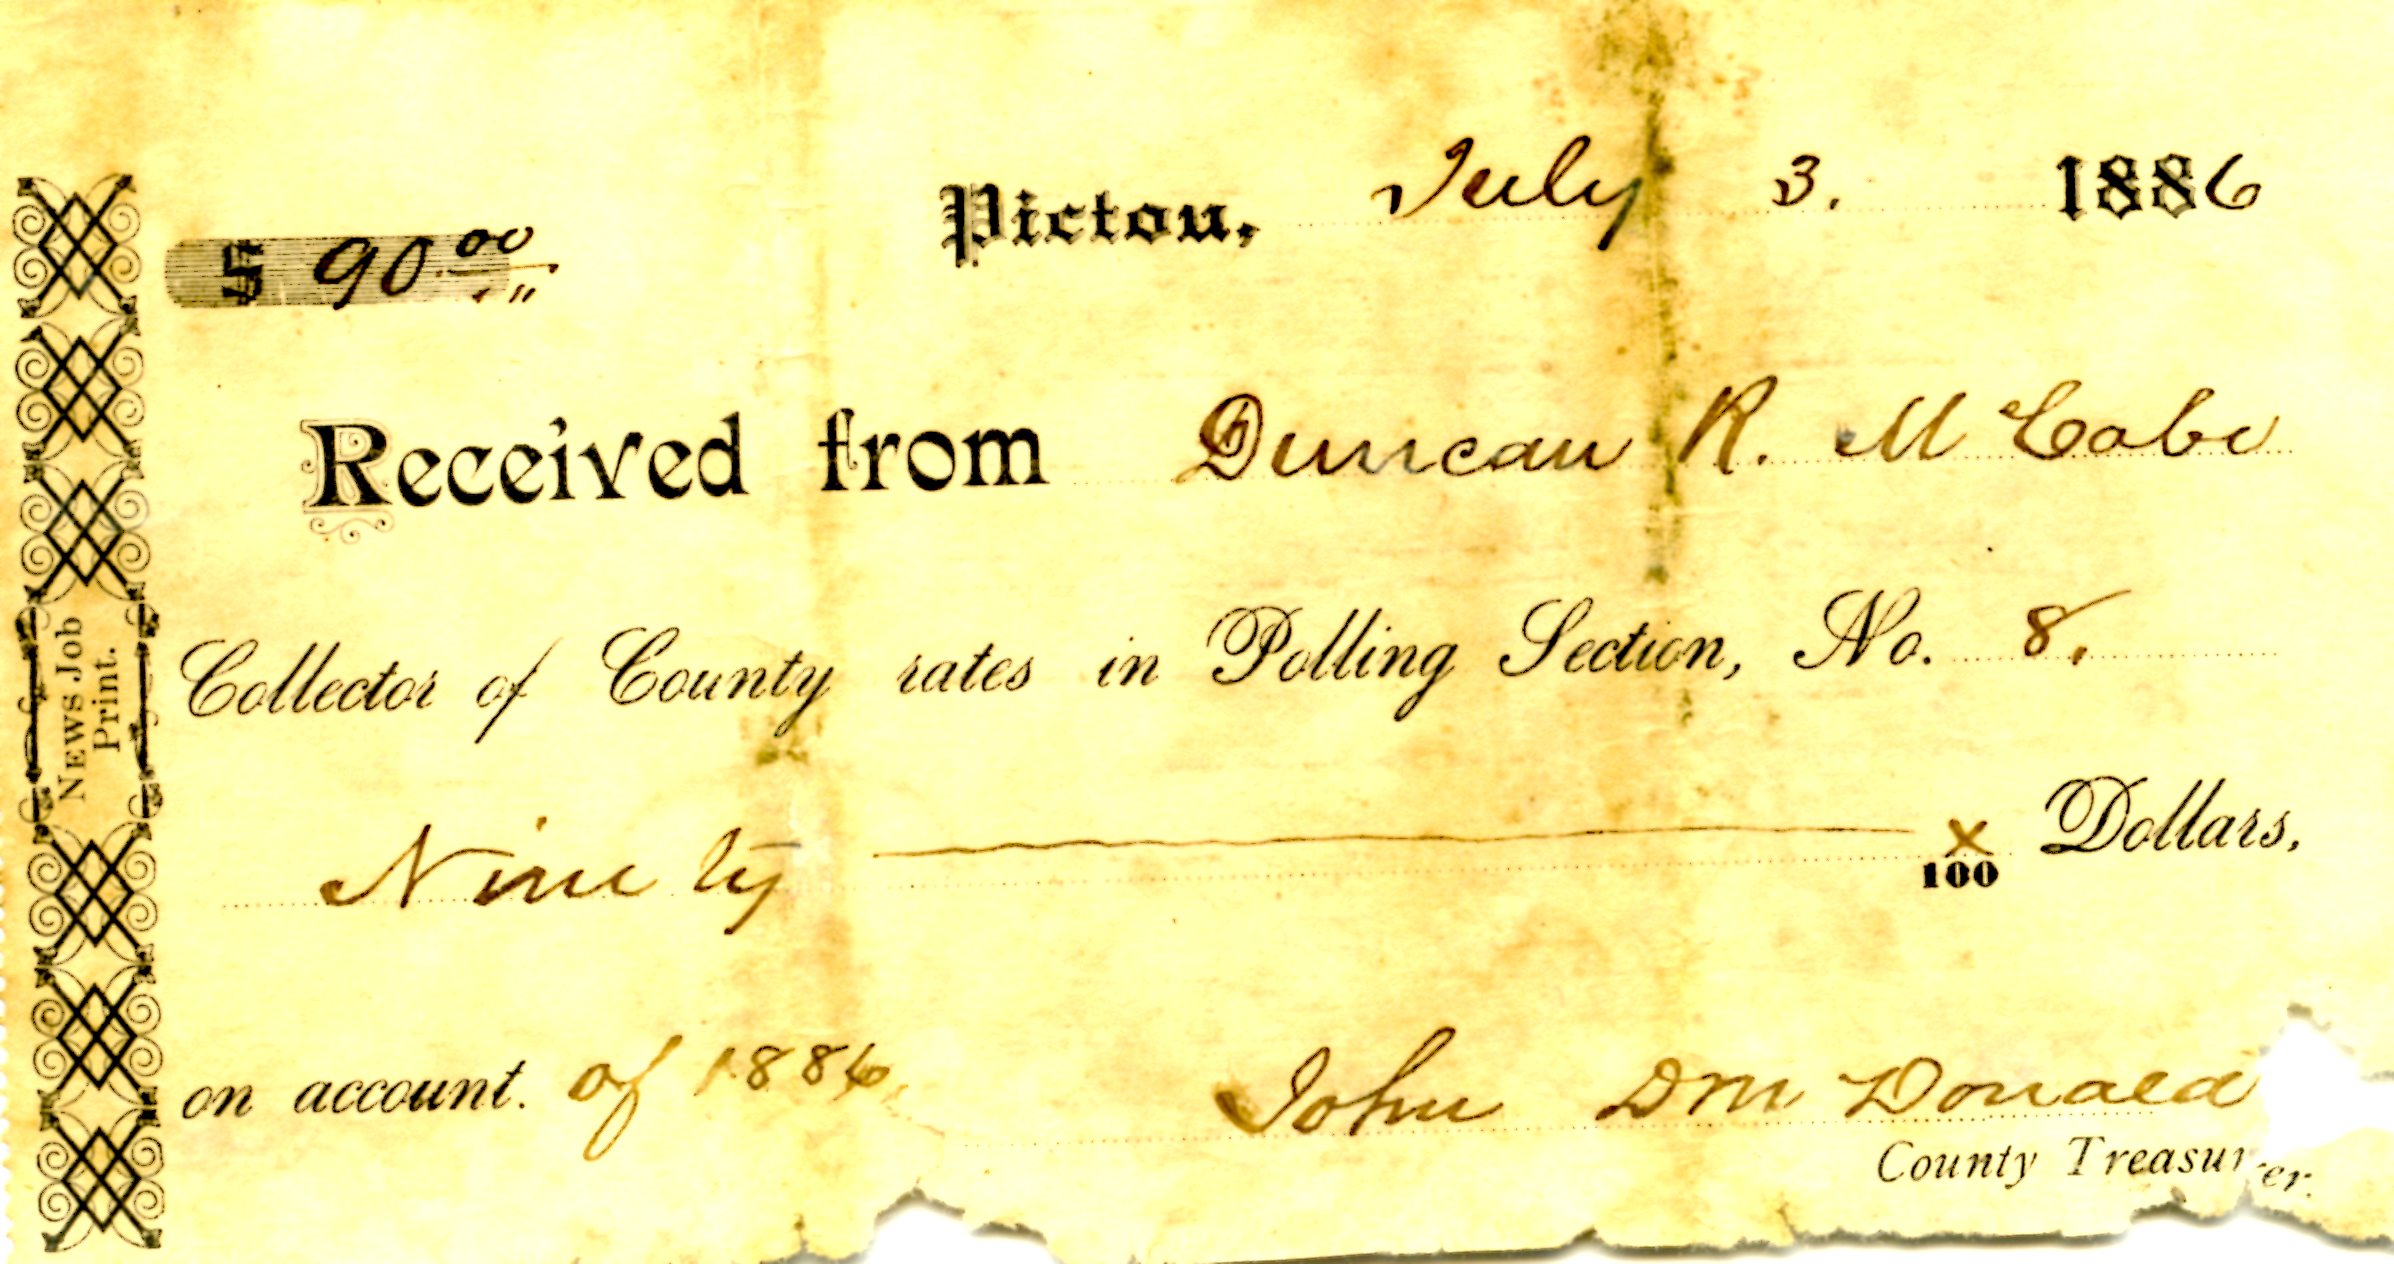 Pictou, July 3. 1886
$ 90.00
Received from Duncan R. McCabe
Collector of County rates in Polling Section, No. 8.
Ninety x/100 Dollars.
on account. of 1886
John D McDonald
County Treasurer.
News Job
Print.